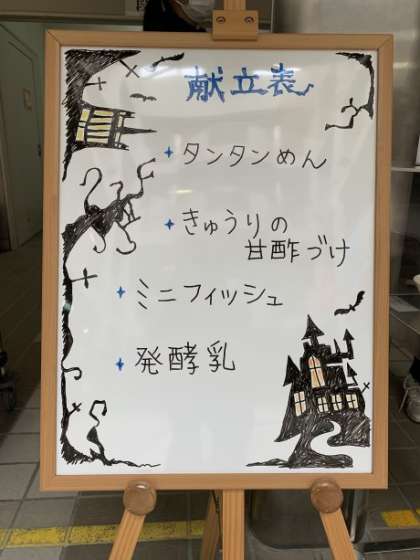 献立表
タンタンめん
きゅうりの
甘酢づけ
ミニフィッシュ
発酵乳